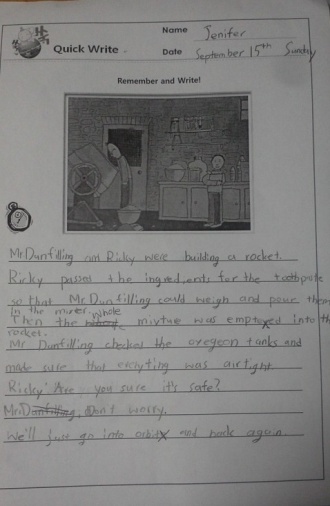 Quick Write
Name Jenifer
Date September 15th Sunday
Remember and Write!
Mr Dunfilling and Ricky were building a rocket.
Ricky passed the ingredients for the toothpaste
so that Mr Dunfilling could weigh and pour them
in the mixer whole
Then the mixtue was emptoed into the
rocket.
Mr Dunfilling checked the oxegeon tanks and
made sure that everyting was airtight.
Ricky: Are you sure it's safe?
Mr Dunfilling, Don't worry,
We'll just go into orbit and back again.